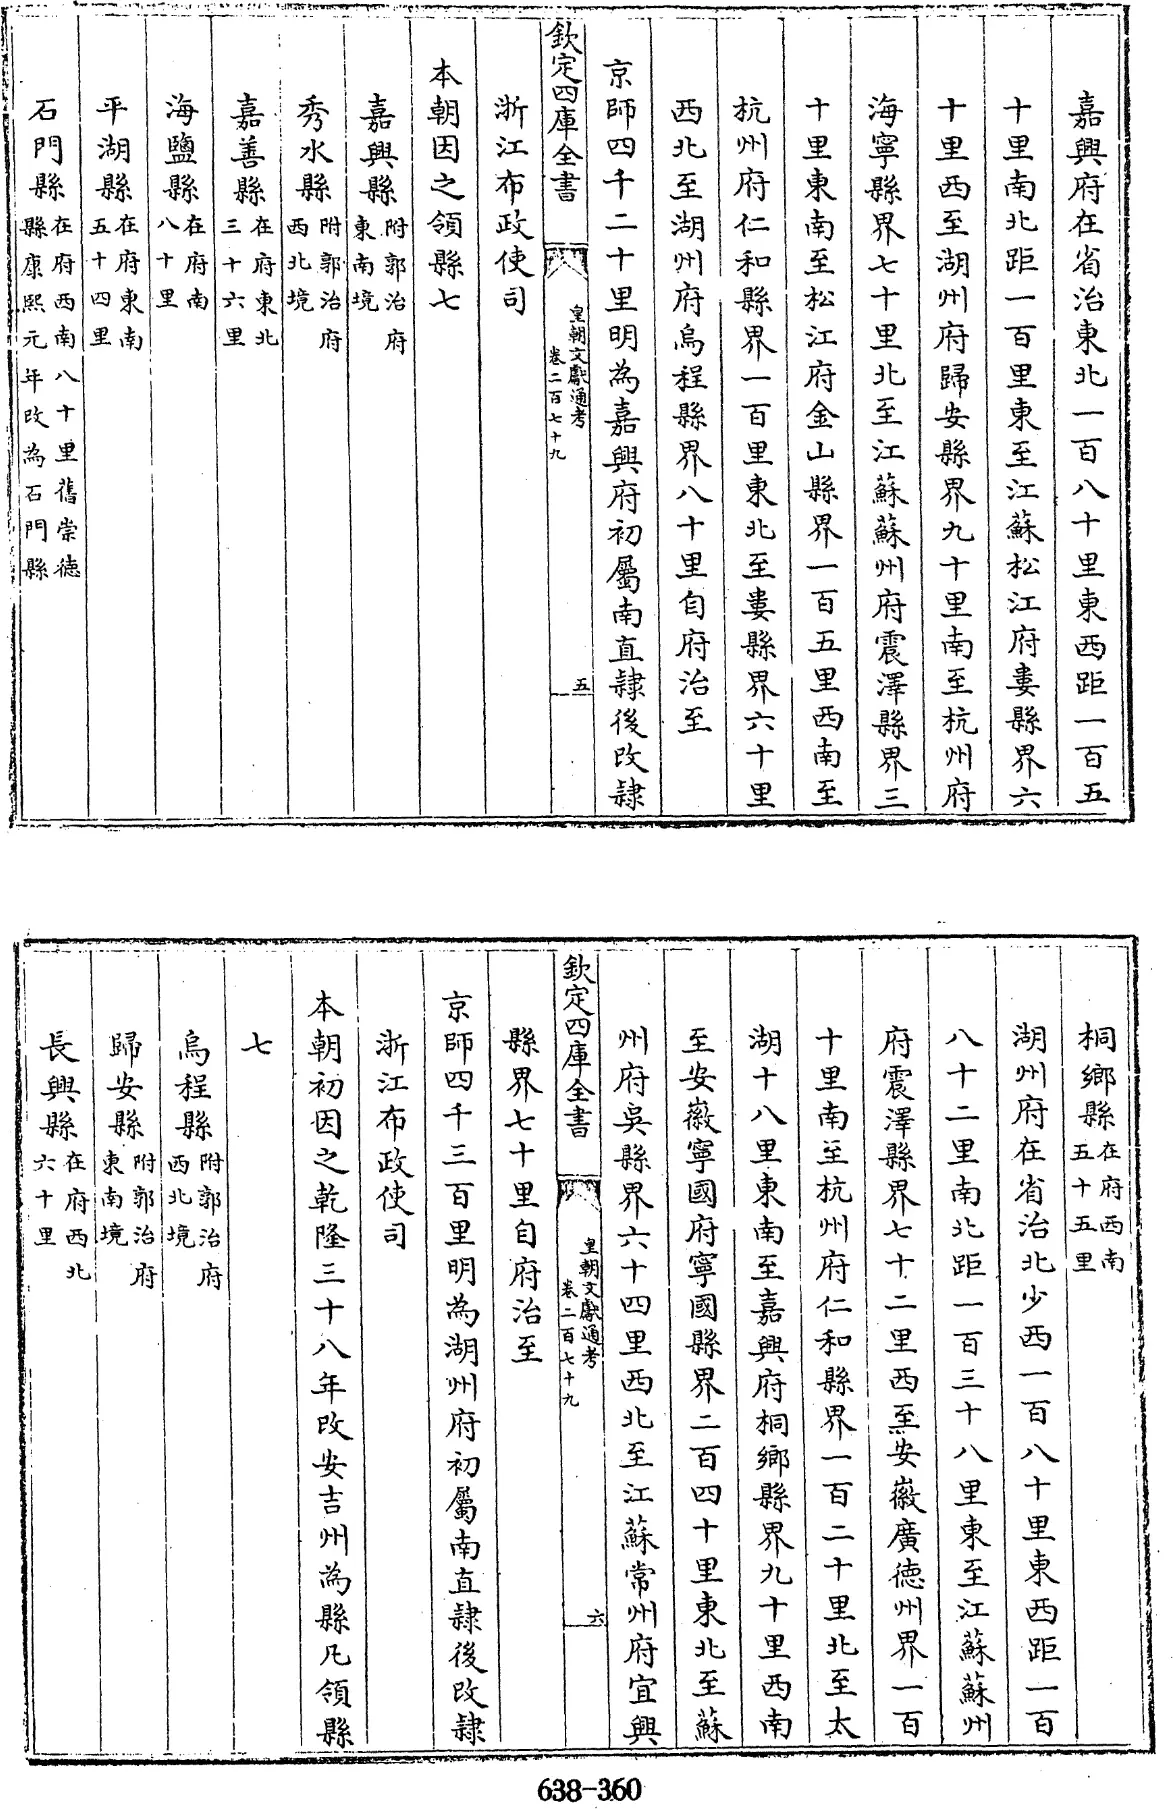 嘉興府在省治東北一百八十里東西距一百五
十里南北距一百里東至江蘇松江府婁縣界六
十里西至湖州府歸安縣界九十里南至杭州府
海寧縣界七十里北至江蘇蘇州府震澤縣界三
十里東南至松江府金山縣界一百五里西南至
杭州府仁和縣界一百里東北至婁縣界六十里
西北至湖州府烏程縣界八十里自府治至
京師四千二十里明為嘉興府初屬南直隸後改隸
欽定四庫全書
皇朝文獻通考
卷二百七十九
五
浙江布政使司
本朝因之領縣七
嘉興縣附郭治府東南境
秀水縣附郭治府西北境
嘉善縣在府東北三十六里
海鹽縣在府南八十里
平湖縣在府東南五十四里
石門縣在府西南八十里舊崇德縣康熙元年改為石門縣
桐鄉縣在府西南五十五里
湖州府在省治北少西一百八十里東西距一百
八十二里南北距一百三十八里東至江蘇蘇州
府震澤縣界七十二里西至安徽廣德州界一百
十里南至杭州府仁和縣界一百二十里北至太
湖十八里東南至嘉興府桐鄉縣界九十里西南
至安徽寧國府寧國縣界二百四十里東北至蘇
州府吳縣界六十四里西北至江蘇常州府宜興
欽定四庫全書
皇朝文獻通考
卷二百七十九
六
縣界七十里自府治至
京師四千三百里明為湖州府初屬南直隸後改隸
浙江布政使司
本朝初因之乾隆三十八年改安吉州為縣凡領縣
七
烏程縣附郭治府西北境
歸安縣附郭治府東南境
長興縣在府西北六十里
638-360